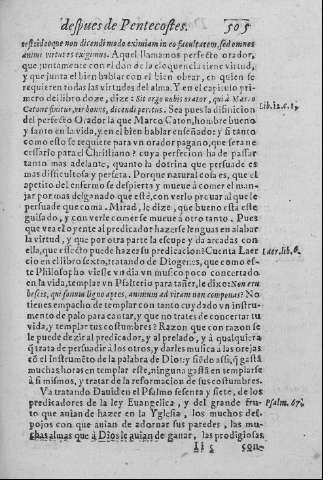 despues de Pentecostes. 505
tesi: ideoque non dicendi modo eximiam in eo facultatem, sed omnes
animi virtutes exigimus. Aquel llamamos perfecto orador,
que juntamente con el don de la eloquencia tiene virtud,
y que junta el bien hablar con el bien obrar, en quien se
requieren todas las virtudes del alma. Y en el capitulo pri-
mero del libro doze, dize: Sit ergo nobis orator, qui à Marco
Catone finitur, vir bonus, dicendi peritus. Sea pues la difinicion
Lib. 12. c. 1,
del perfecto Orador la que Marco Caton, hombre bueno
y santo en la vida, y en el bien hablar enseñado: y si tanto
como esto se requiere para vn orador pagano, que sera ne
cessario para el Christiano? cuya perfecion ha de passar
tanto mas adelante, quanto la dotrina que persuade es
mas dificultosa y perfeta. Porque natural cosa es, que el
apetito del enfermo se despierta y mueue à comer el man-
jar por mas delgnado que esté, con verlo prouar al que le
persuade que coma. Mirad, le dize, que bueno està este
guisado, y con verle comer se mueue à otro tanto. Pues
que vea el oyente al predicador hazerse lenguas en alabar
la virtud, y que por otra parte la escupe y da arcadas con
ella, que efecto puede hazer su predicacion? Cuenta Laer
Laer. lib. 6.
cio en el libro sexto, tratando de Diogenes, que como es-
te Philosopho viesse vn dia vn musico poco concertado
en la vida, templar vn Psalterio para tañer, le dixo: Non eru
bescis, qui sonum ligno aptes, animum ad vitam non componas? No
tienes empacho de templar con tanto cuydado vn instru-
mento de palo para cantar, y que no trates de concertar tu
vida, y templar tus costumbres? Razon que con razon se
le puede dezir al predicador, y al prelado, y à qualquiera
q̃ trata de persuadir à los otros, y darles musica à las orejas
cõ el Instrumẽto de la palabra de Dios: y siẽdo assi, q̃ gastã
muchas horas en templar este, ninguna gastã en templarse
à si mismos, y tratar de la reformacion de sus costumbres.
Va tratando Dauid en el Psalmo sesenta y siete, de los
predicadores de la ley Euangelica, y del grande fru-
Psalm. 67.
to que auian de hazer en la Yglesia, los muchos des-
pojos con que auian de adornar sus paredes, las mu-
chas almas que à Dios le auian de ganar, las prodigiosas
Ii 5 con-